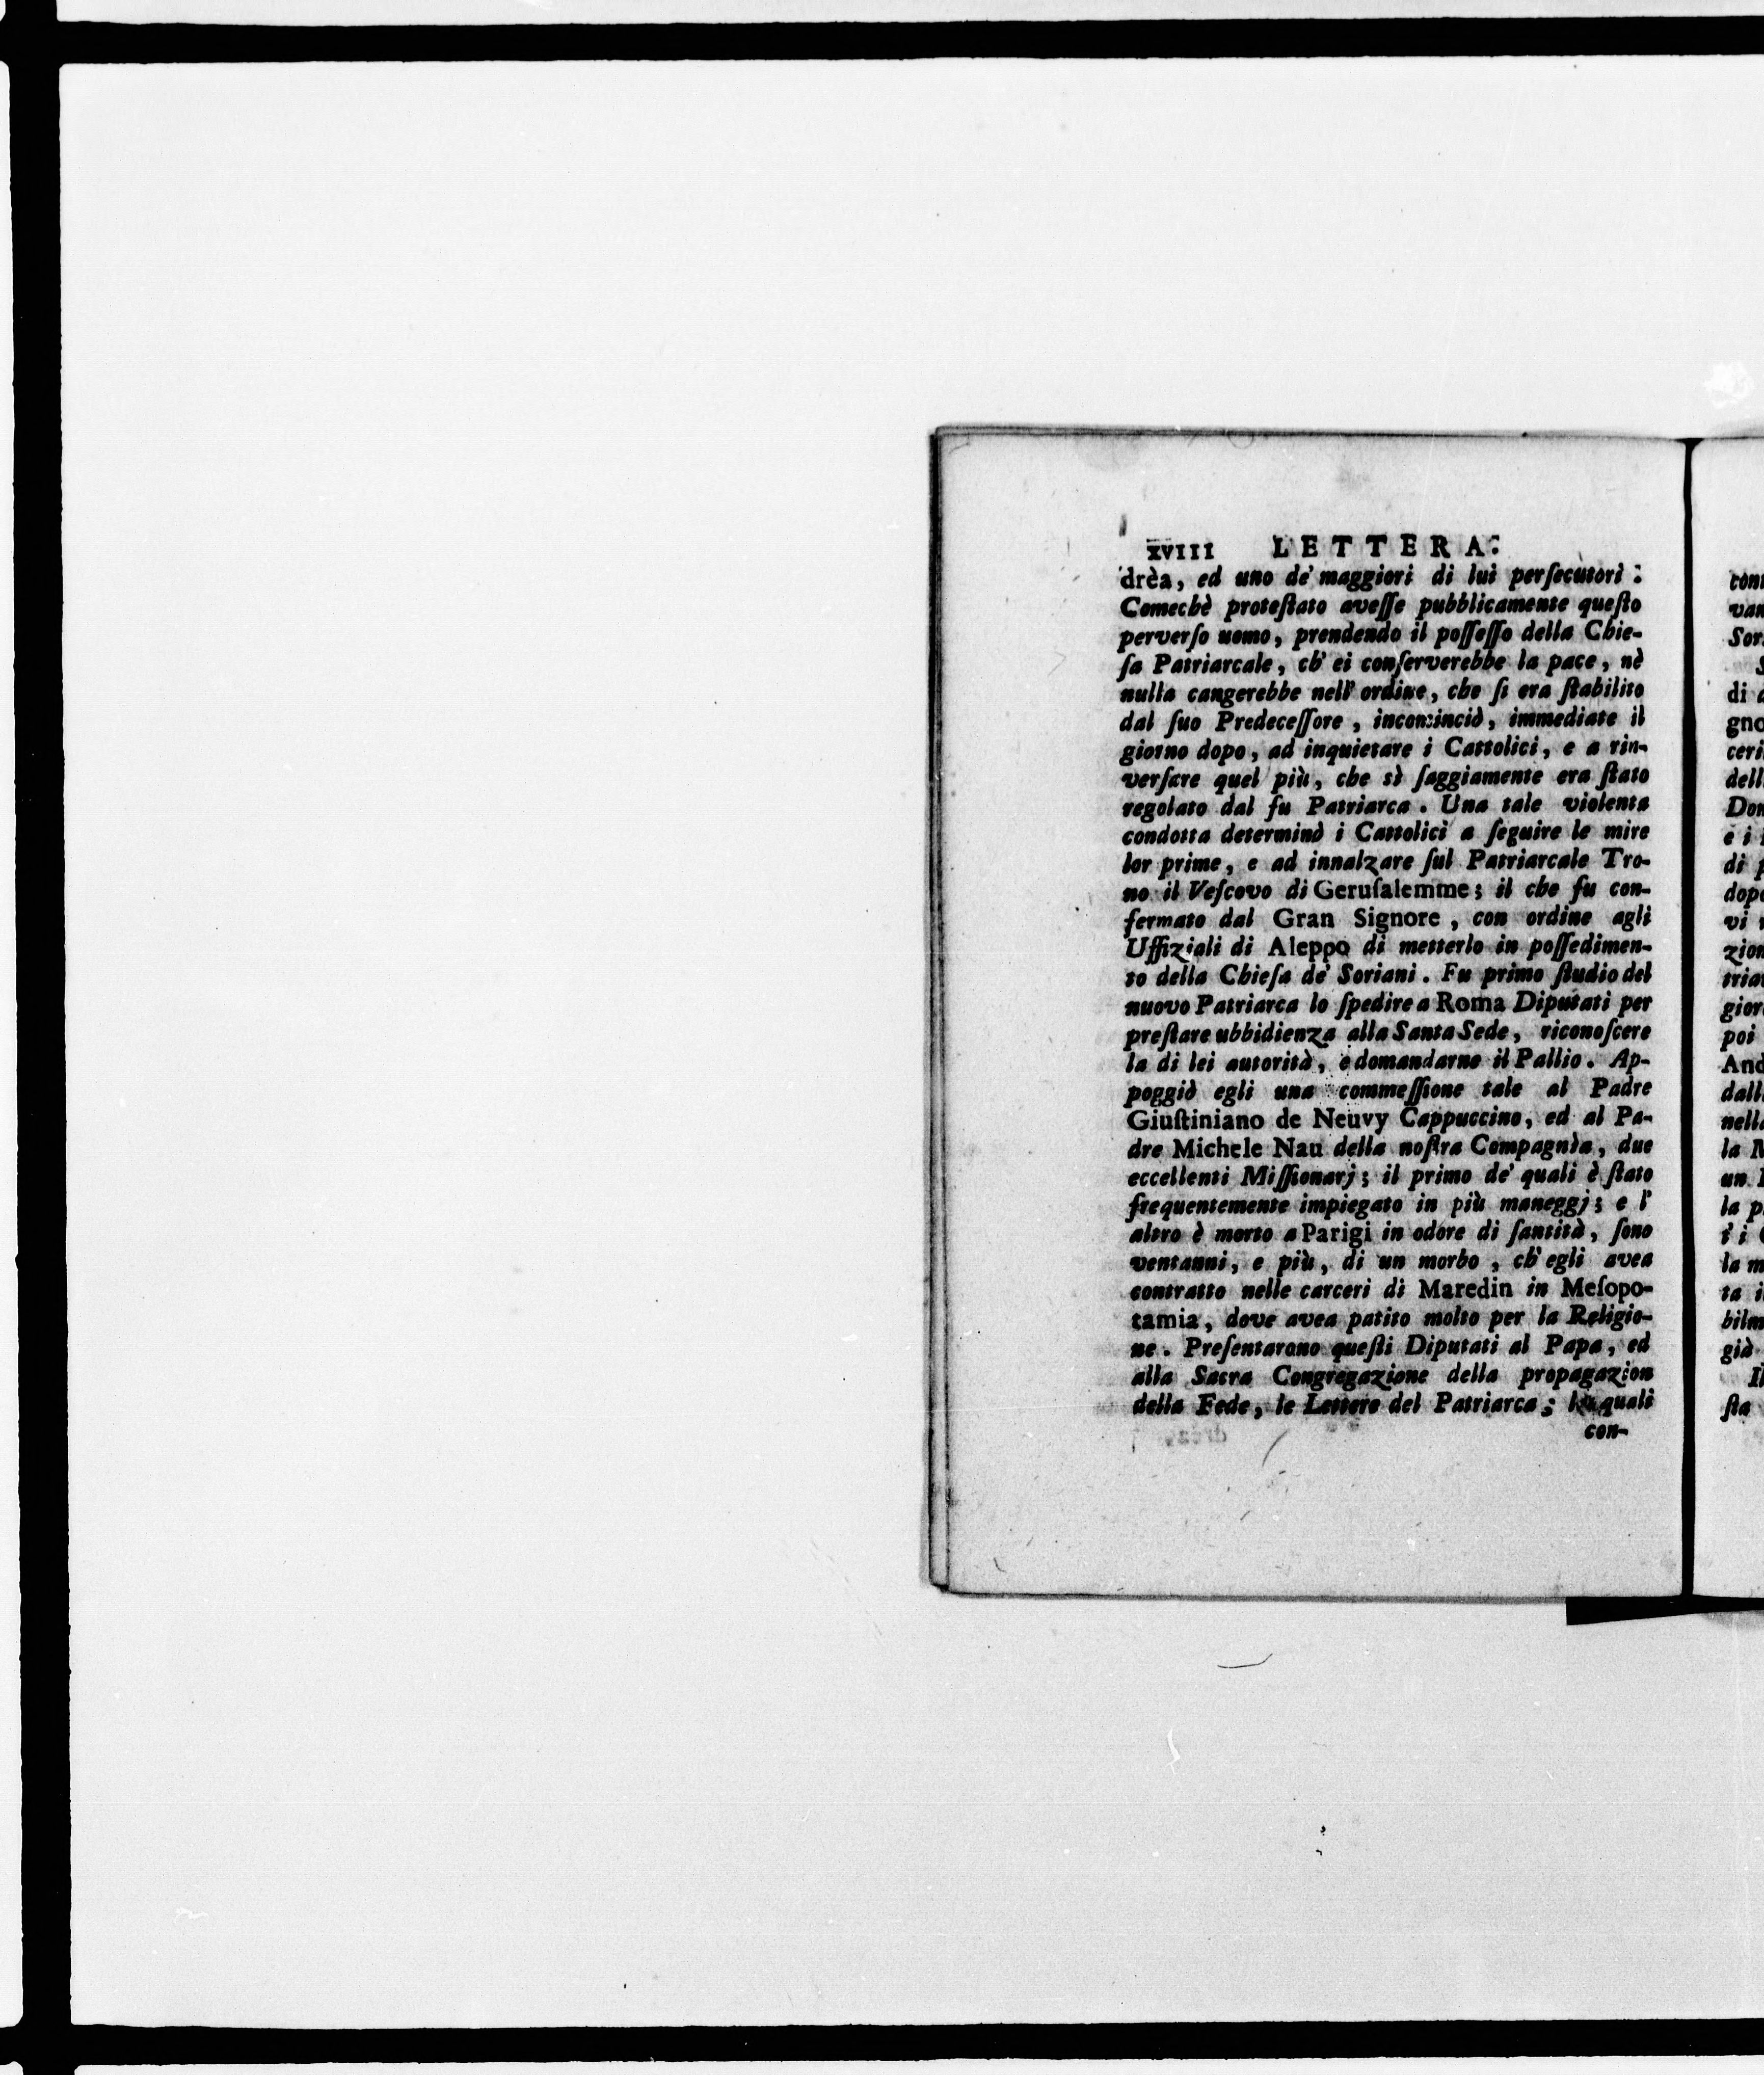 xviii LETTERA:
drèa, ed uno de' maggiori di lui perſecutori:
Comechè proteſtato aveſſe pubblicamente queſto
perverſo uomo, prendendo il poſſeſſo della Chie-
ſa Patriarcale, ch' ei conſerverebbe la pace, nè
nulla cangerebbe nell' ordine, che ſi era ſtabilito
dal ſuo Predeceſſore, incominciò, immediate il
giorno dopo, ad inquietare i Cattolici, e a rin-
verſare quel più, che sì ſaggiamente era ſtato
regolato dal fu Patriarca. Una tale violenta
condotta determinò i Cattolici a ſeguire le mire
lor prime, e ad innalzare ſul Patriarcale Tro-
no il Veſcovo di Geruſalemme; il che fu con-
fermato dal Gran Signore, con ordine agli
Uffiziali di Aleppo di metterlo in poſſedimen-
to della Chieſa de' Soriani. Fu primo ſtudio del
nuovo Patriarca lo ſpedire a Roma Diputati per
preſtare ubbidienza alla Santa Sede, riconoſcere
la di lei autorità, e domandarne il Pallio. Ap-
poggiò egli una commeſſione tale al Padre
Giuſtiniano de Neuvy Cappuccino, ed al Pa-
dre Michele Nau della noſtra Compagnìa, due
eccellenti Miſſionarj; il primo de' quali è ſtato
frequentemente impiegato in più maneggj; e l'
altro è morto a Parigi in odore di ſantità, ſono
ventanni, e più, di un morbo, ch' egli avea
contratto nelle carceri di Maredin in Meſopo-
tamia, dove avea patito molto per la Religio-
ne. Preſentarono queſti Diputati al Papa, ed
alla Sacra Congregazione della propagazion
della Fede, le Lettere del Patriarca; le quali
con-
con
van
Sor
S
di
gno
ceri
dell
Don
e i
di p
dopo
vi
zion
tria
gior
poi
And
dall
nella
la M
un
la p
t' i
la m
ta i
bilm
già
Il
ſta